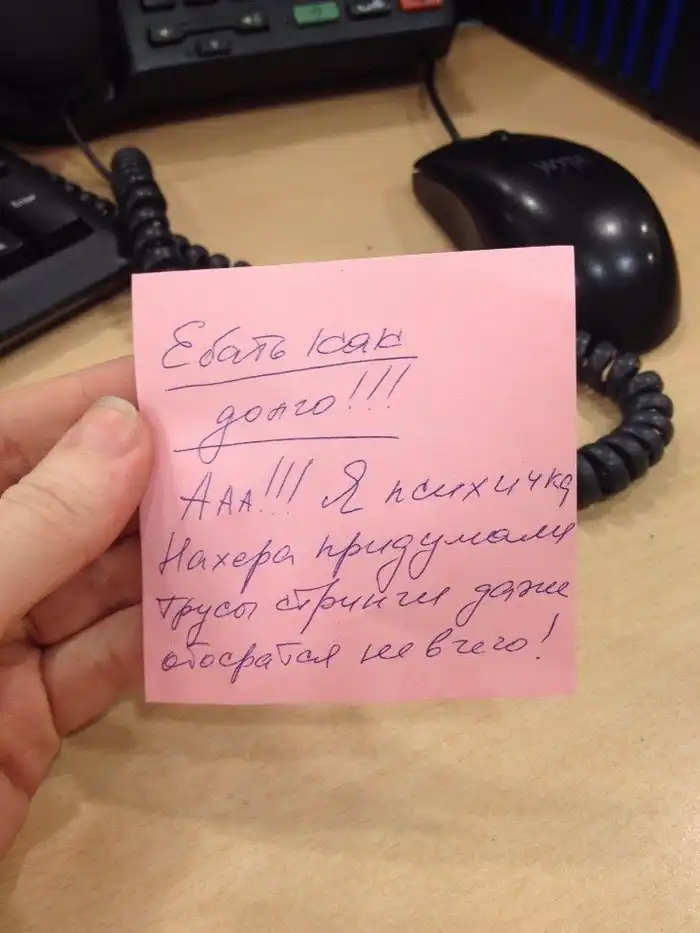 Ебать как
долго!!!
Ааа!!! Я психичка
Нахера придумали
трусы стринги даже
обосратся не вчего!